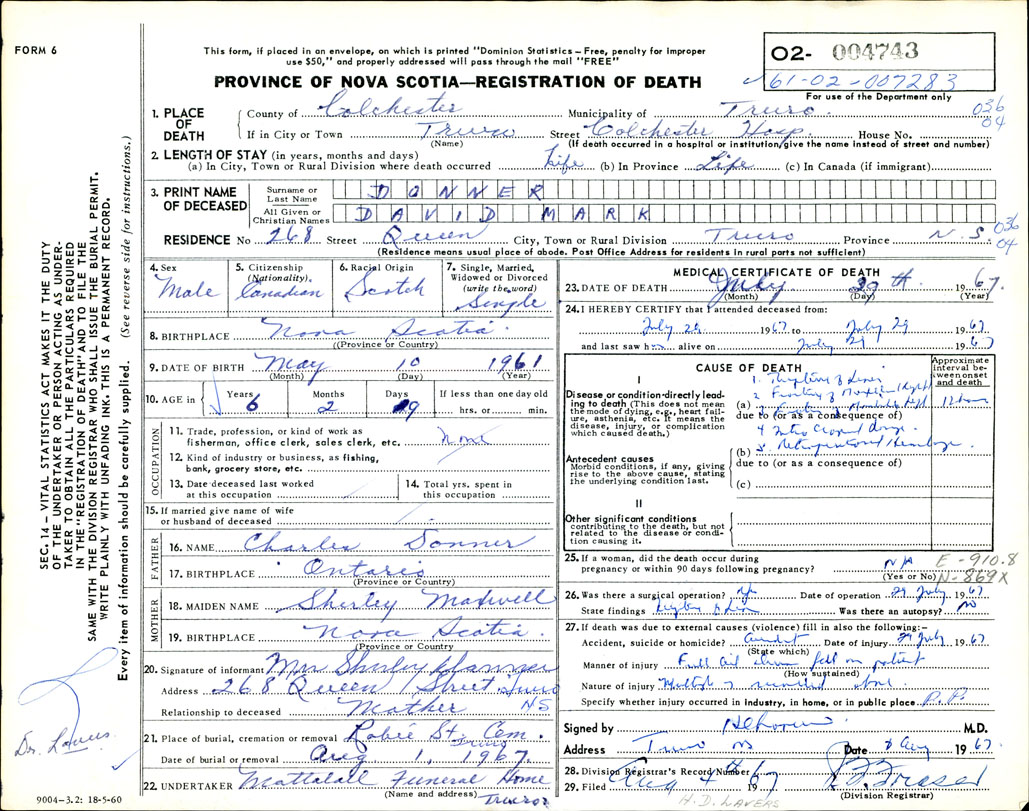 FORM 6
This form, if placed in an envelope, on which is printed "Dominion Statistics – Free, penalty for improper
use $50," and properly addressed will pass through the mail "FREE"
PROVINCE OF NOVA SCOTIA—REGISTRATION OF DEATH
02- 004743
61-02-007283
For use of the Department only
1. PLACE OF DEATH County of Colchester Municipality of Truro. 036
04
If in City or Town Truro Street Colchester Hosp. House No.
(Name) (If death occurred in a hospital or institution, give the name instead of street and number)
2. LENGTH OF STAY (in years, months and days)
(a) In City, Town or Rural Division where death occurred Life (b) In Province Life (c) In Canada (if immigrant)
3. PRINT NAME OF DECEASED
Surname or Last Name DONNER
All Given or Christian Names DAVID MARK
RESIDENCE No 268 Street Queen City, Town or Rural Division Truro Province N.S. 036
04
(Residence means usual place of abode. Post Office Address for residents in rural parts not sufficient)
4. Sex Male
5. Citizenship (Nationality) Canadian
6. Racial Origin Scotch
7. Single, Married, Widowed or Divorced (write the word) Single
8. BIRTHPLACE Nova Scotia
(Province or Country)
9. DATE OF BIRTH May 10 1961
(Month) (Day) (Year)
10. AGE in Years 6 Months 2 Days 19 If less than one day old
hrs. or min.
OCCUPATION
11. Trade, profession, or kind of work as
fisherman, office clerk, sales clerk, etc. none
12. Kind of industry or business, as fishing,
bank, grocery store, etc.
13. Date deceased last worked at this occupation
14. Total yrs. spent in this occupation
15. If married give name of wife
or husband of deceased
FATHER
16. NAME Charles Donner
17. BIRTHPLACE Ontario
(Province or Country)
MOTHER
18. MAIDEN NAME Shirley Maxwell
19. BIRTHPLACE Nova Scotia.
(Province or Country)
20. Signature of informant Mrs Shirley
Address 268 Queen Street Truro
NS
Relationship to deceased Mother
21. Place of burial, cremation or removal Robie St. Cem.
Truro
Date of burial or removal Aug 1, 1967.
22. UNDERTAKER Mattatall Funeral Home
(Name and address) Truro
9004–3.2: 18-5-60
MEDICAL CERTIFICATE OF DEATH
23. DATE OF DEATH July 29 th 1967.
(Month) (Day) (Year)
24. I HEREBY CERTIFY that I attended deceased from:
July 29 1967 to July 29 1967
and last saw him alive on July 29 1967
CAUSE OF DEATH
Approximate interval between onset and death
I
Disease or condition directly leading to death (This does not mean the mode of dying, e.g., heart failure, asthenia, etc. It means the disease, injury, or complication which caused death.)
1.
2
(a) 12 hours
due to (or as a consequence of)
4
5. Retroperitoneal Hemorrhage
(b)
due to (or as a consequence of)
(c)
Antecedent causes
Morbid conditions, if any, giving rise to the above cause, stating the underlying condition last.
II
Other significant conditions
contributing to the death, but not related to the disease or condition causing it.
25. If a woman, did the death occur during
pregnancy or within 90 days following pregnancy? N/A
(Yes or No)
E -910.8
N-869X
26. Was there a surgical operation? Yes Date of operation 29 July 1967
State findings Was there an autopsy? No
27. If death was due to external causes (violence) fill in also the following:–
Accident, suicide or homicide? Accident Date of injury 29 July 1967
(State which)
Manner of injury fell on patient
(How sustained)
Nature of injury
Specify whether injury occurred in industry, in home, or in public place P.P.
Signed by M.D.
Address Truro NS Date Aug 1967
28. Division Registrar's Record Number
29. Filed Aug 4 th 1967
(Division Registrar)
H.D. LAVERS
SEC. 14 – VITAL STATISTICS ACT MAKES IT THE DUTY
OF THE UNDERTAKER OR PERSON ACTING AS UNDERTAKER TO OBTAIN ALL THE PARTICULARS REQUIRED
IN THE "REGISTRATION OF DEATH" AND TO FILE THE
SAME WITH THE DIVISION REGISTRAR WHO SHALL ISSUE THE BURIAL PERMIT.
WRITE PLAINLY WITH UNFADING INK. THIS IS A PERMANENT RECORD.
Every item of information should be carefully supplied. (See reverse side for instructions.)
Dr. Lavers.